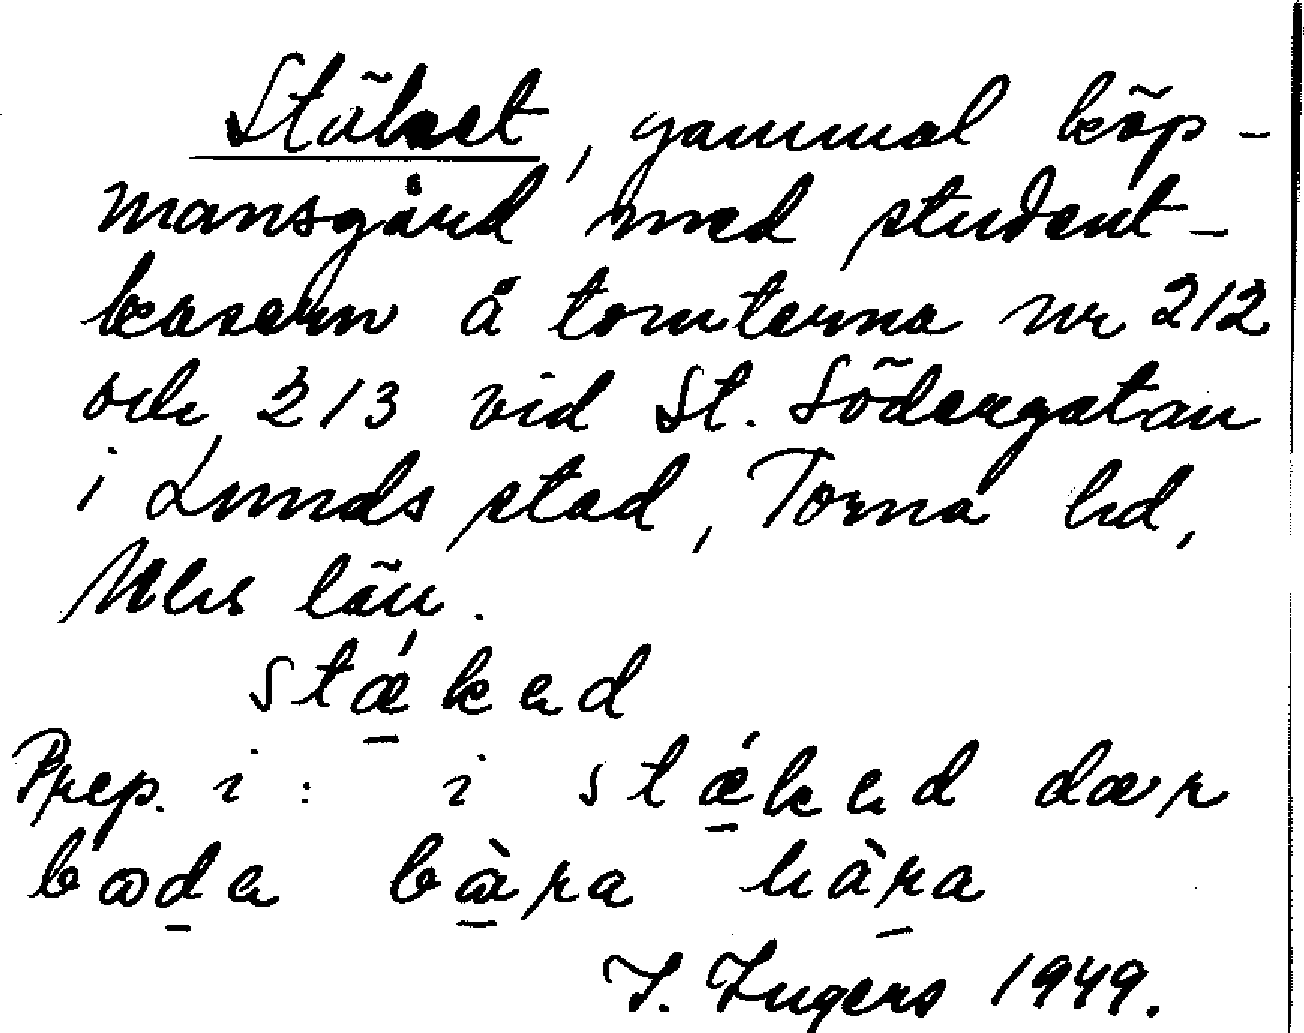 Stäket, gammal köp-
mansgård med student-
kasern å tomterna nr 212
och 213 vid St. Södergatan
i Lunds stad, Torna hd,
Mlhs län.
stǽ̠kəd
Prep. i: i stǽ̠kəd dær
bod̠ə bæ̠̀ra hàr̠a
I. Ingers 1949.